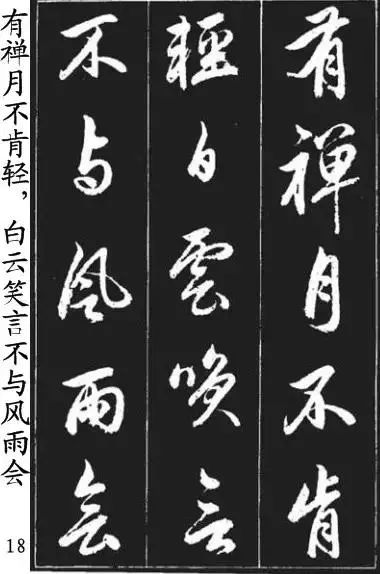 有禅月不肯
輕白雲喚言
不与风雨会
有禅月不肯轻，白云笑言不与风雨会
18